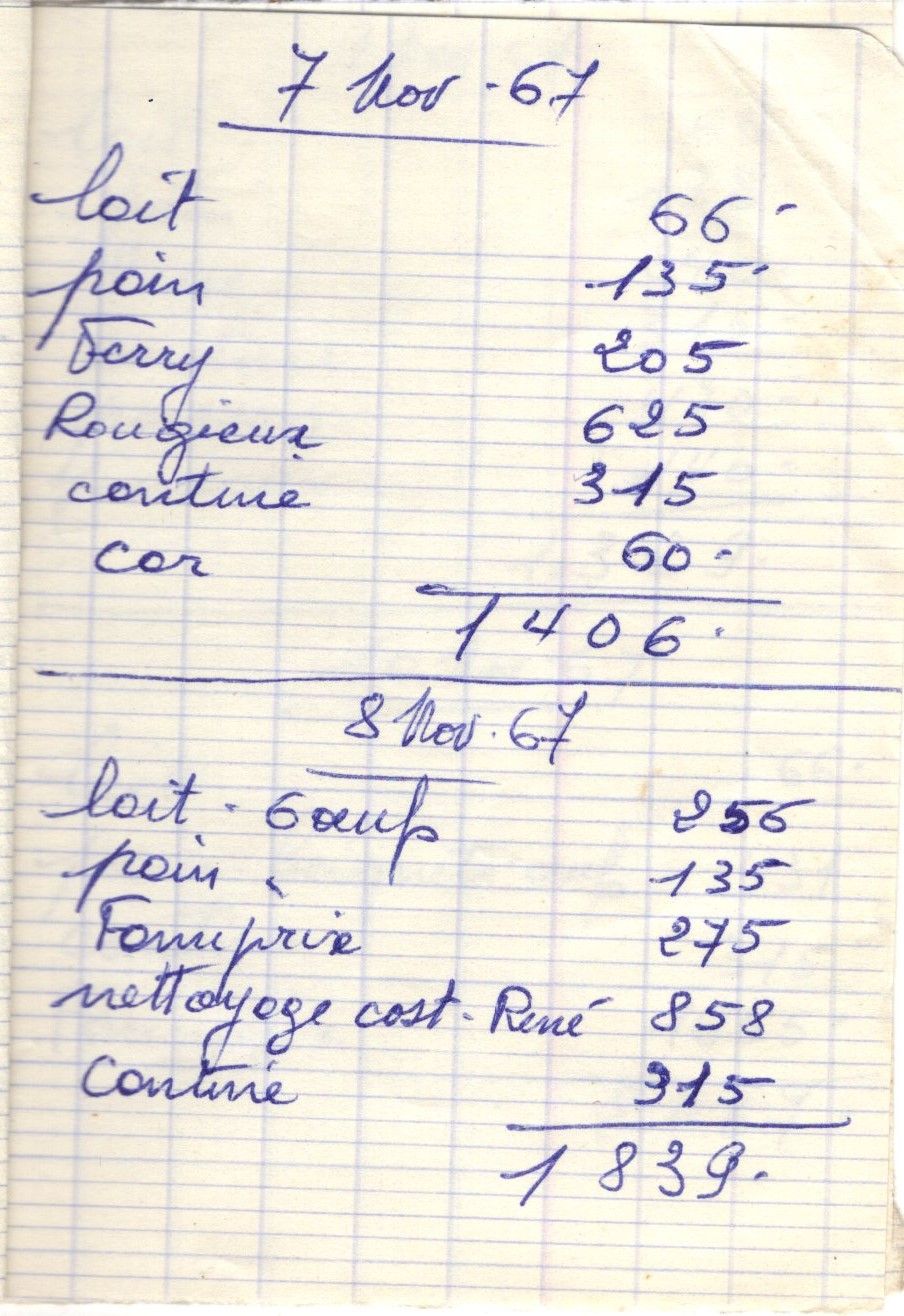 7 Nov - 67
lait 66 -
pain 135 -
Ferry 205
Rougieux 625
cantine 315
car 60 -
1 406 -
8 Nov. 67
lait - 6 œufs 256
pain 135
Famiprix 275
nettoyage cost - René 858
Cantine 315
1 839 -